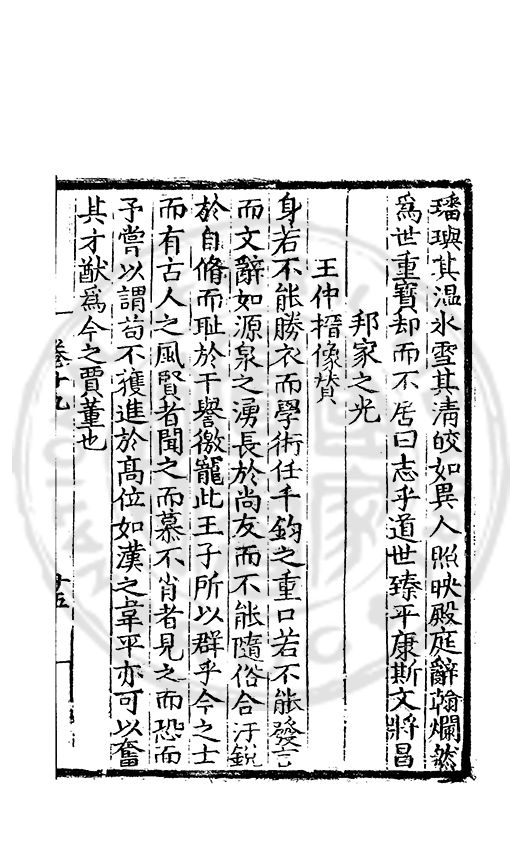 璠璵其温氷雪其清皎如異人照映殿庭辭翰爛然
爲世重寶却而不居曰志乎道世臻平康斯文將昌
邦家之光
王仲搢像賛
身若不能勝衣而學術任千鈞之重口若不能發言
而文辭如源泉之湧長於尚友而不能隨俗合汙銳
於自脩而耻於干譽徼寵此王子所以群乎今之士
而有古人之風賢者聞之而慕不肖者見之而恐而
予嘗以謂茍不獲進於髙位如漢之韋平亦可以奮
其才猷爲今之賈董也
卷十九
十五